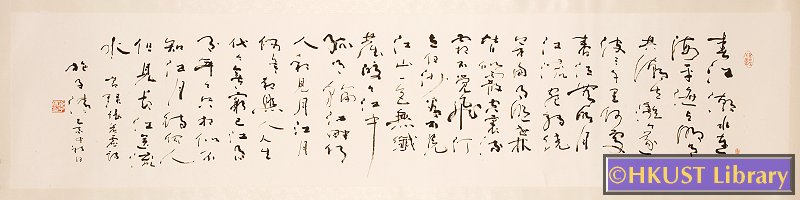 春江潮水連
海平海上明月
共潮生灧灧隨
波千萬里何處
春江無月明
江流宛轉繞
芳甸月照花林
皆似霰空裏流
霜不覺飛汀
上白沙看不見
江一色無纖
塵皎皎中
孤月輪江畔何
人初見月江月
何年初照人人生
代代無窮已江月
年年只相似不
知江月待何人
但見長江送流
水 張若虛詩
©HKUST Library